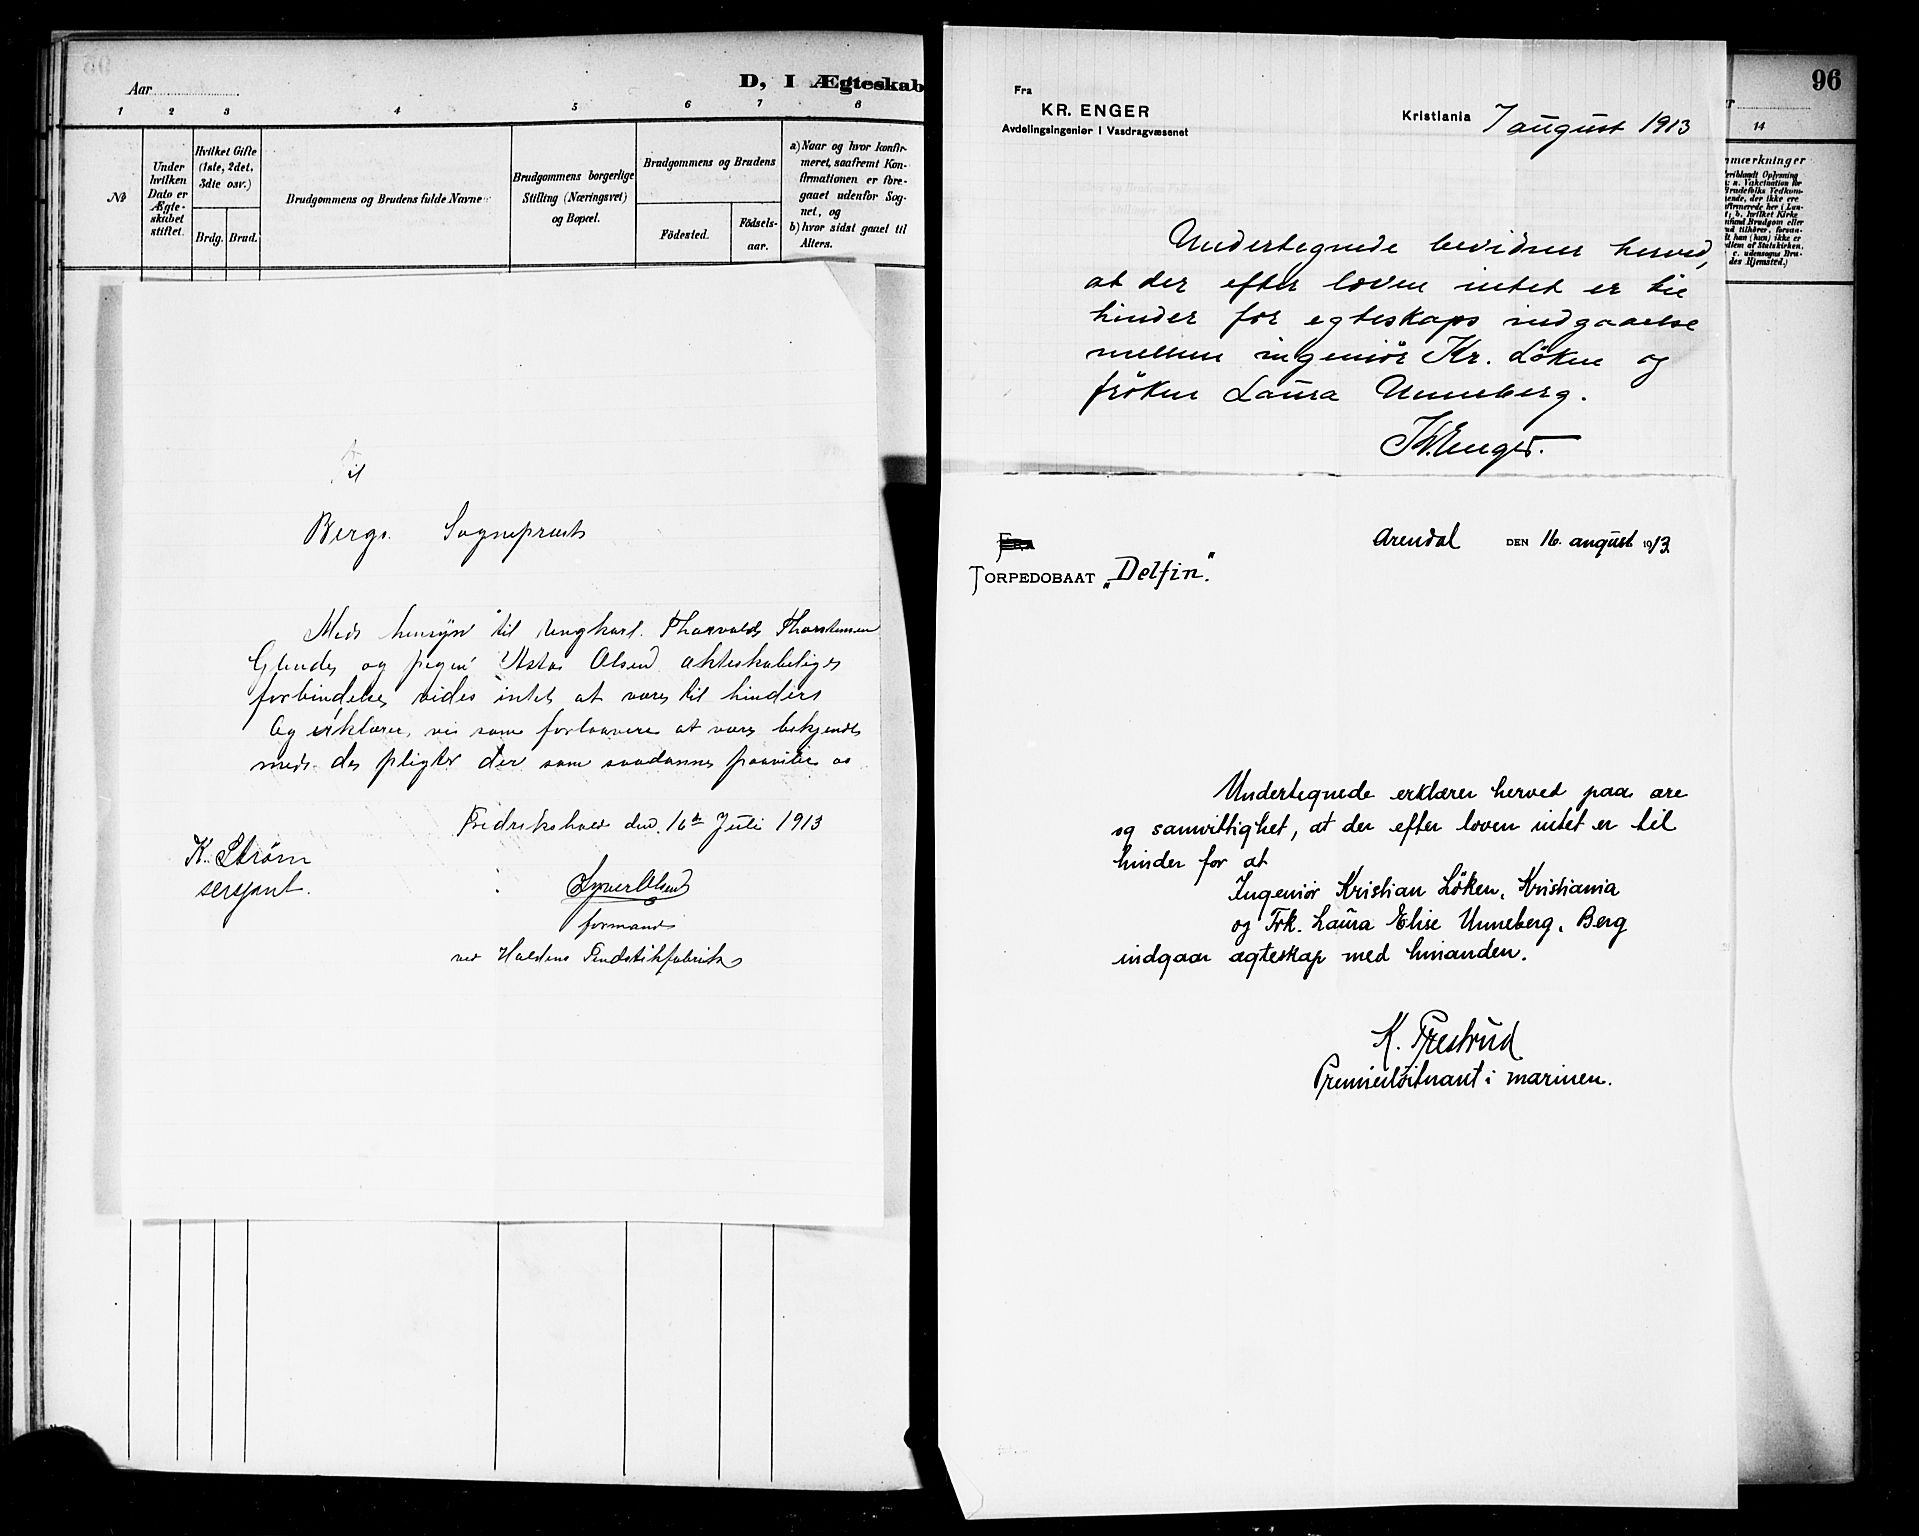 Aar
D, I Ægteskab
1 2 3 4 5 6 7 8
No
Under hvilken Dato er Ægte-skabet stiftet.
Hvilket Gifte (1ste, 2det, 3die osv.)
Brdg. Brud.
Brudgommens og Brudens fulde Navne
Brudgommens borgerlige Stilling (Næringsvei) og Bopæl.
Brudgommens og Brudens
Födested.
Födsels-aar.
a) Naar og hvor konfir-
meret, saafremt Kon-
firmationen er fore-
gaaet udenfor Sog-
net, og
b) hvor sidst gaaet til
Alters.
Til
Bergs Sogneprest
Med hensyn til Ungkarl Thorvald Thorstensen
Glende og pigen Asta Olsend akteskabelige
forbindelse vides intet at være til hinder
Og erklærer vi som forlovere at være bekjendt
med de pligter der som saadanne paaviler os
Fredrikshald den 16de Juli 1913
K. Strøm
sersjant.
Syver Olsend
formand
ved Haldens Fendstikfabrik
Fra
KR. ENGER
Avdelingsingeniør i Vasdragvæsenet
Kristiania 7 august 1913
Undertegnede bevidner herved,
at der efter loven intet er til
hinder for egteskaps indgaaelse
mellem ingeniör Kr. Löken og
fröken Laura Unneberg.
Kr. Enger.
Fra
TORPEDOBAAT „Delfin".
Arendal DEN 16. august 1913
Undertegnede erklærer herved paa ære
og samvittighet, at der efter loven intet er til
hinder for at
Ingeniør Kristian Löken, Kristiania
og Frk. Laura Elise Unneberg, Berg
indgaar ægteskap med hinanden.
K. Prestrud
Premierløitnant i marinen.
96
14
nmærkninger